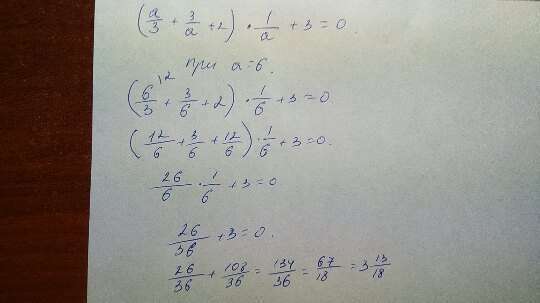 (a/3 + 3/a + 2) · 1/a + 3 = 0.
при a = 6.
(6/3 ^12 + 3/6 + 2) · 1/6 + 3 = 0
(12/6 + 3/6 + 12/6) · 1/6 + 3 = 0.
26/6 · 1/6 + 3 = 0
26/36 + 3 = 0.
26/36 + 108/36 = 134/36 = 67/18 = 3 13/18